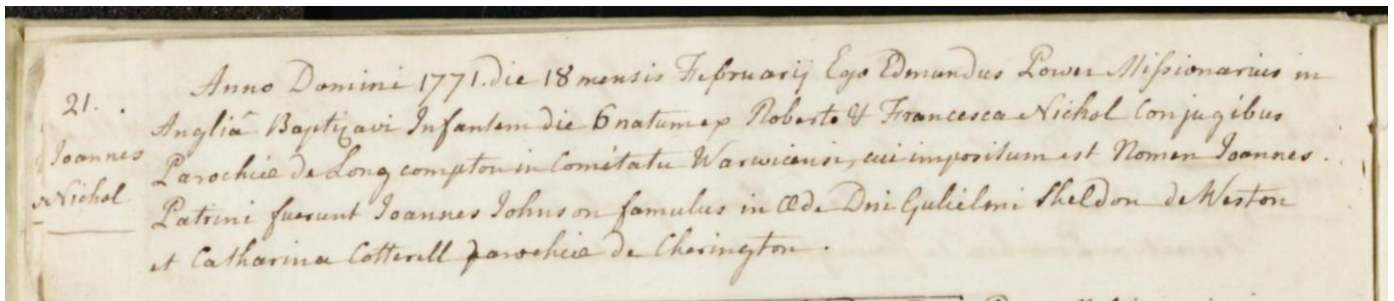 21.
Joannes
Nichol
Anno Domini 1771. die 18 mensis Februarij Ego Edmundus Power Missionarius in
Angliâ Baptizavi Infantem die 6 natum ex Roberto & Francesca Nichol Conjugibus
Parochiæ de Long compton in Comitatu Warwicensi, cui impositum est Nomen Joannes.
Patrini fuerunt Joannes Johnson famulus in Æde Dni Gulielmi Sheldon de Weston
et Catharina Cotterell parochiæ de Cherington.